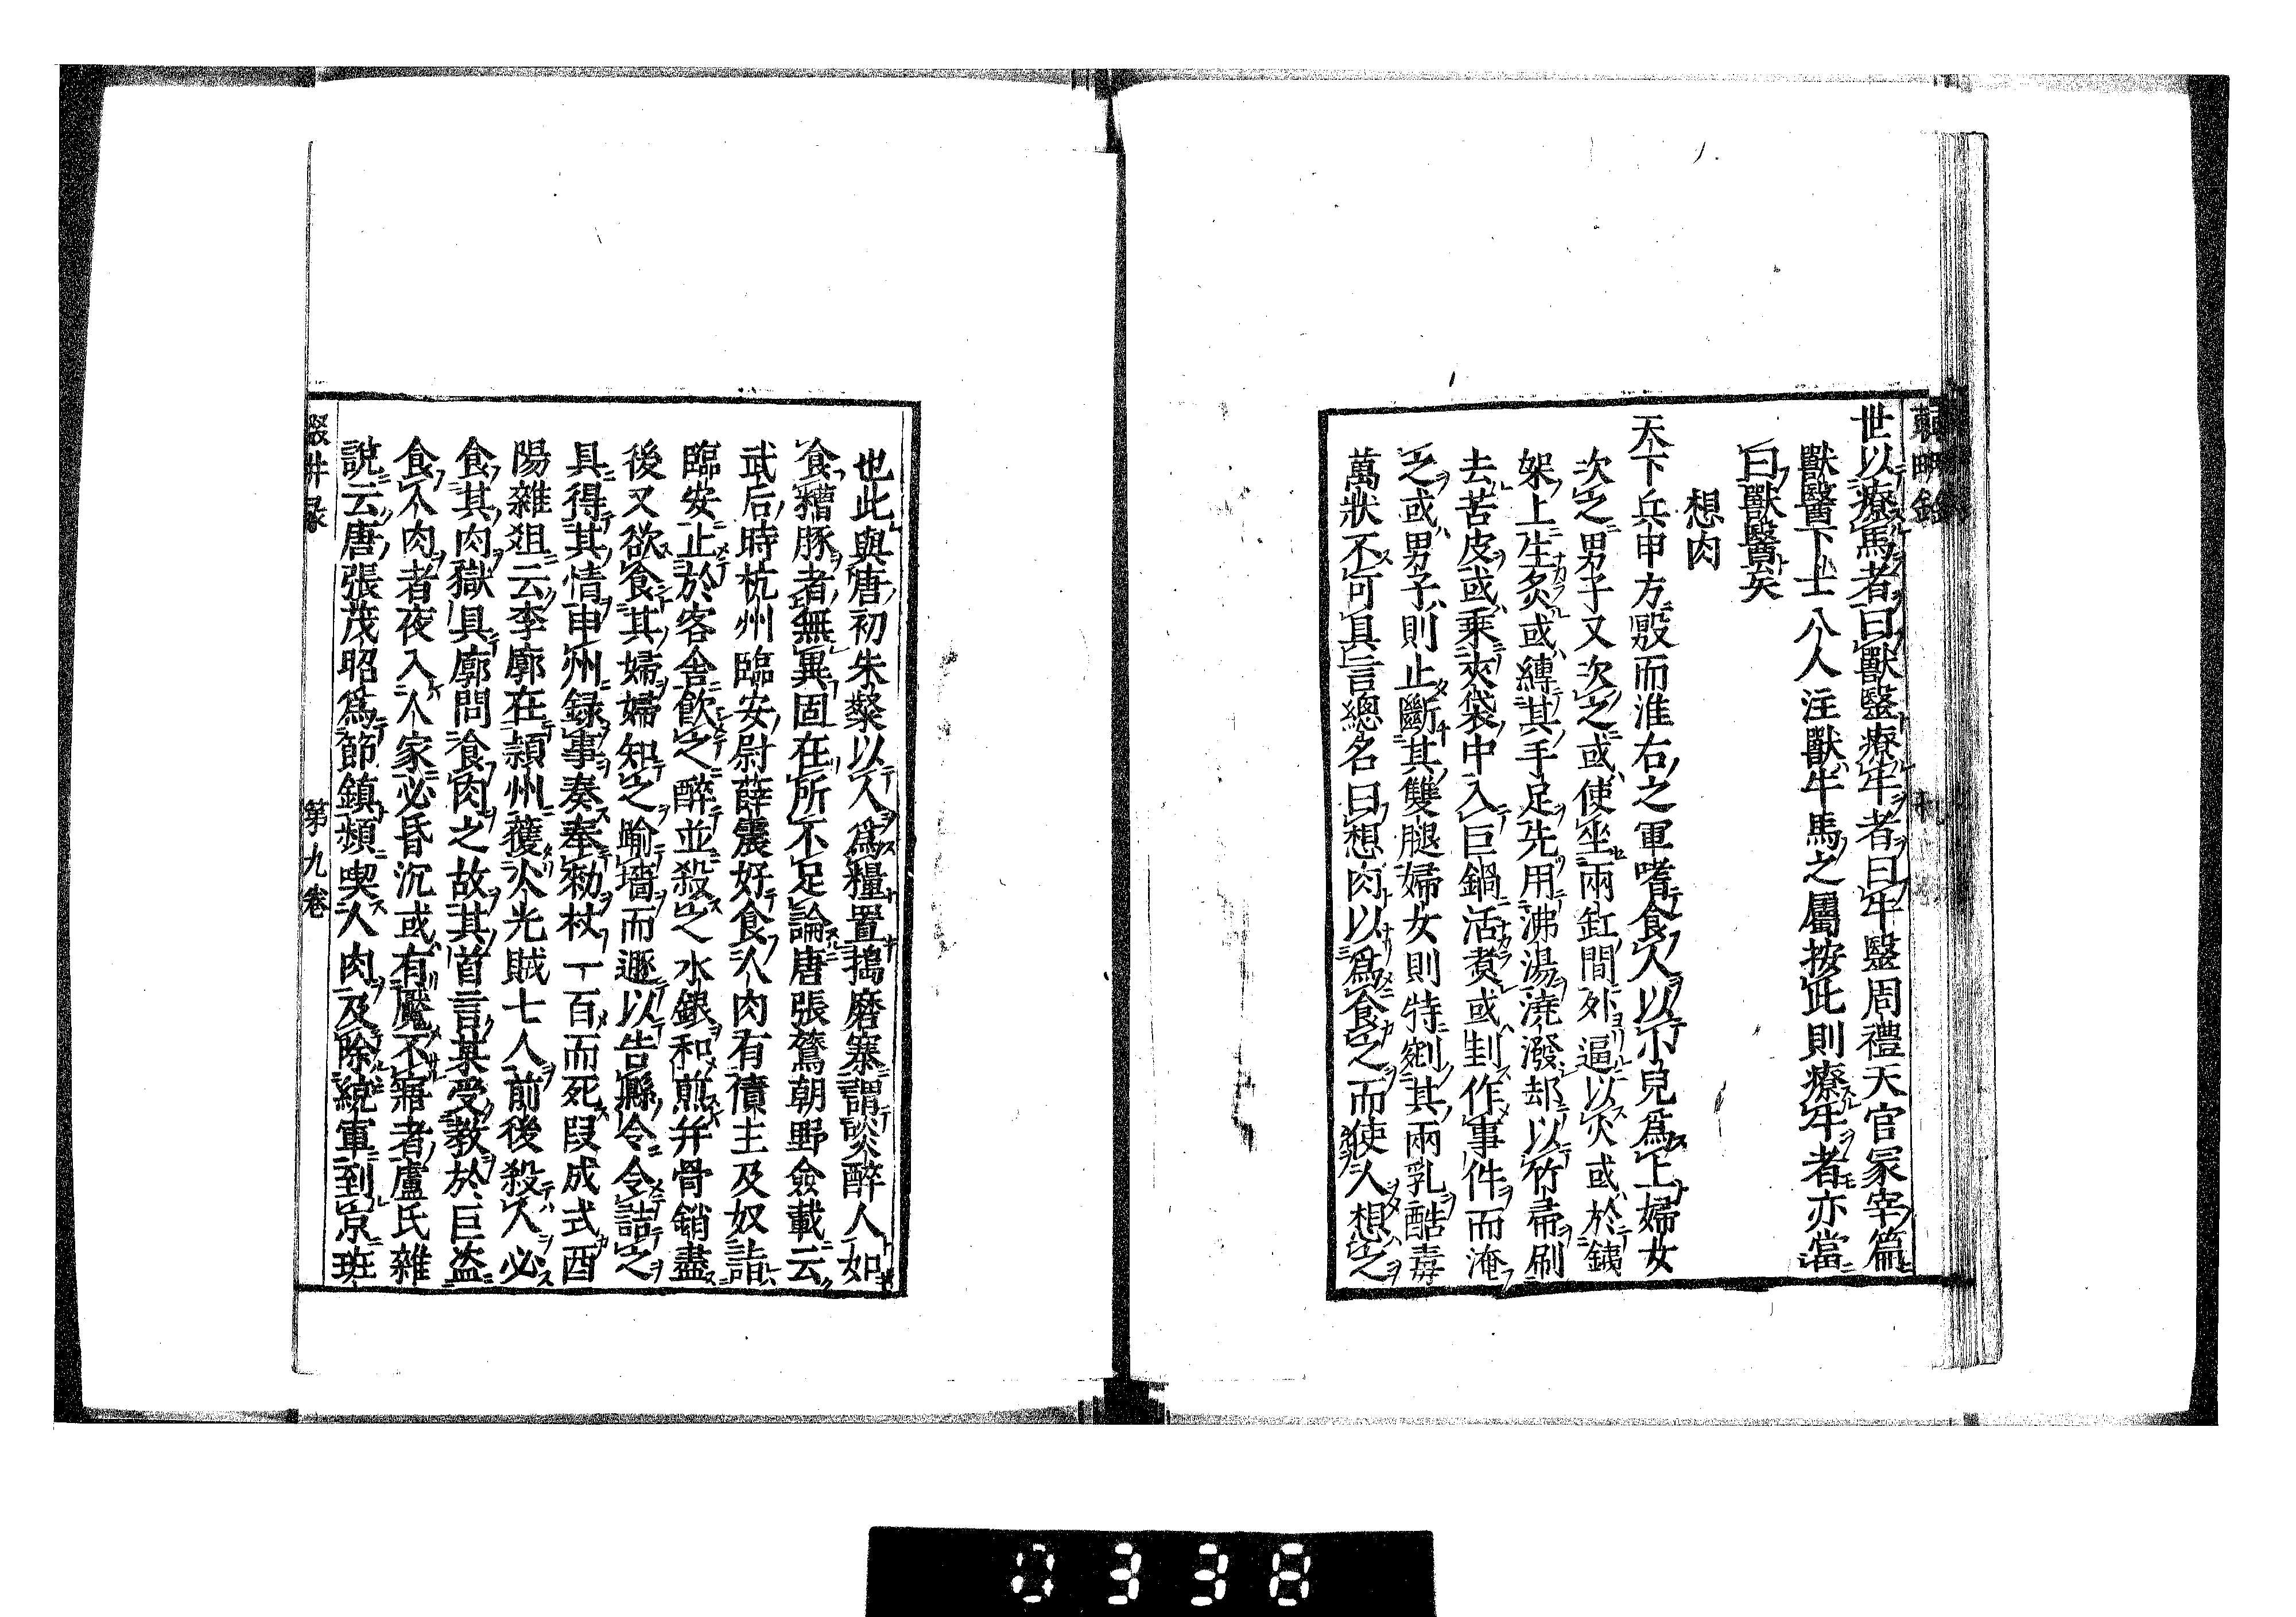 輟畊錄
世以療馬者曰獸醫療牛者曰牛毉周禮天官冢宰篇
獸醫下士八人注獸牛馬之屬按此則療牛者亦當
曰獸醫矣
想肉
天下兵甲方殷而淮右之軍嗜食人以小兒爲上婦女
次之男子又次之或使坐兩缸間外逼以火或於鐵
架上生炙或縛其手足先用沸湯澆潑却以竹帚刷
去苦皮或乘夾袋中入巨鍋活煮或刲作事件而淹
之或男子則止斷其雙腿婦女則特剜其兩乳酷毒
萬狀不可具言總名曰想肉以爲食之而使人想之
也此與唐初朱粲以人爲糧置搗磨寨謂啖醉人如
食糟豚者無異固在所不足論唐張鷟朝野僉載云
武后時杭州臨安尉薛震好食人肉有債主及奴詣
臨安止於客舍飲之醉並殺之水銀和煎并骨銷盡
後又欲食其婦婦知之踰墻而遯以告縣令令詰之
具得其情申州錄事奏奉勑杖一百而死段成式酉
陽雜俎云李廓在潁州獲火光賊七人前後殺人必
食其肉獄具廓問食肉之故其首言某受教於巨盜
食人肉者夜入人家必昏沉或有魘不寤者盧氏雜
說云唐張茂昭爲節鎮頻喫人肉及除統軍到京班
第九卷
0338